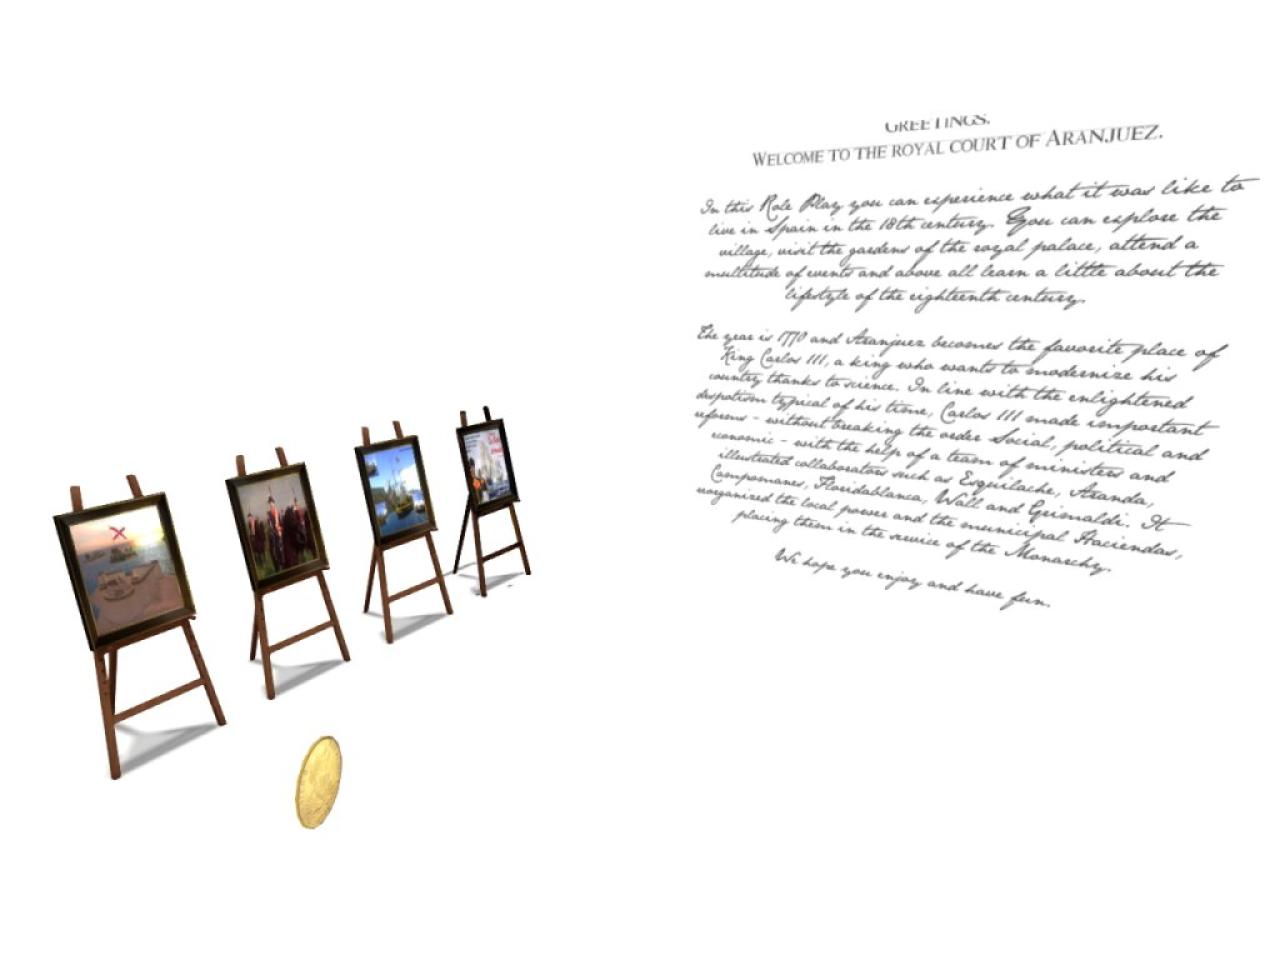 GREETINGS.
WELCOME TO THE ROYAL COURT OF ARANJUEZ.
In this Role Play you can experience what it was like to
live in Spain in the 18th century. You can explore the
village, visit the gardens of the royal palace, attend a
multitude of events and above all learn a little about the
lifestyle of the eighteenth century.
The year is 1770 and Aranjuez becomes the favorite place of
King Carlos III, a king who wants to modernize his
country thanks to science. In line with the enlightened
despotism typical of his time, Carlos III made important
reforms - without breaking the order Social, political and
economic - with the help of a team of ministers and
illustrated collaborators such as Esquilache, Aranda,
Campomanes, Floridablanca, Wall and Grimaldi. It
reorganized the local power and the municipal Haciendas,
placing them in the service of the Monarchy.
We hope you enjoy and have fun.